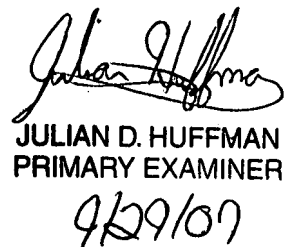 Julian Huffman
JULIAN D. HUFFMAN
PRIMARY EXAMINER
9/29/07